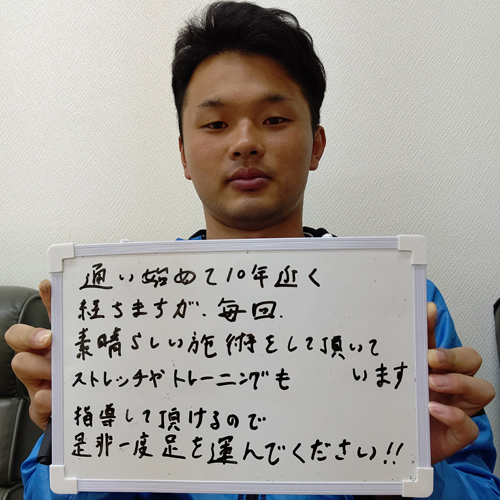 通い始めて10年近く
経ちますが、毎回、
素晴らしい施術をして頂いて
います
ストレッチやトレーニングも
指導して頂けるので
是非一度足を運んでください!!